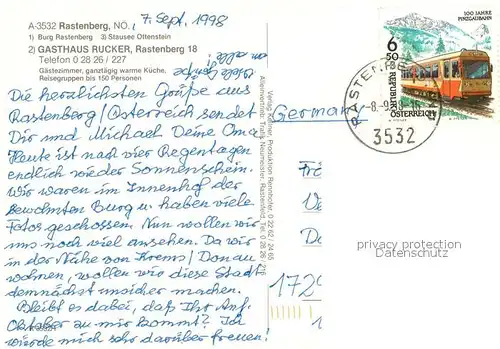 A-3532 Rastenberg, NÖ,
7. Sept. 1998
1) Burg Rastenberg 3) Stausee Ottenstein
2) GASTHAUS RUCKER, Rastenberg 18
Telefon 0 28 26 / 227
Gästezimmer, ganztägig warme Küche,
Reisegruppen bis 150 Personen
Die herzlichsten Grüße aus
Rastenberg/Österreich sendet
Dir und Michael Deine Oma
Heute ist nach vier Regentagen
endlich wieder Sonnenschein.
Wir waren im Innenhof der
bewohnten Burg u. haben viele
Fotos geschossen. Nun wollen wir
uns noch viel ansehen. Da wir
in der Nähe von Krems/Donau
wohnen, wollen wir diese Stadt
demnächst unsicher machen.
Bleibt es dabei, daß Ihr Anf.
Oktober zu mir kommt? Ich
würde mich sehr darüber freuen!
Verlag Kellner, Produktion Rennhofer, 0 22 62 / 24 65
Alleinvertrieb: Trafik Neumeister, Rastenfeld, Tel. 0 28 26 /
Germany
100 JAHRE
PINZGAUBAHN
6 50
REPUBLIK
ÖSTERREICH
RASTENFE
-8.-9.98-
3532
Fr
V
D
172
privacy protection
Datenschutz